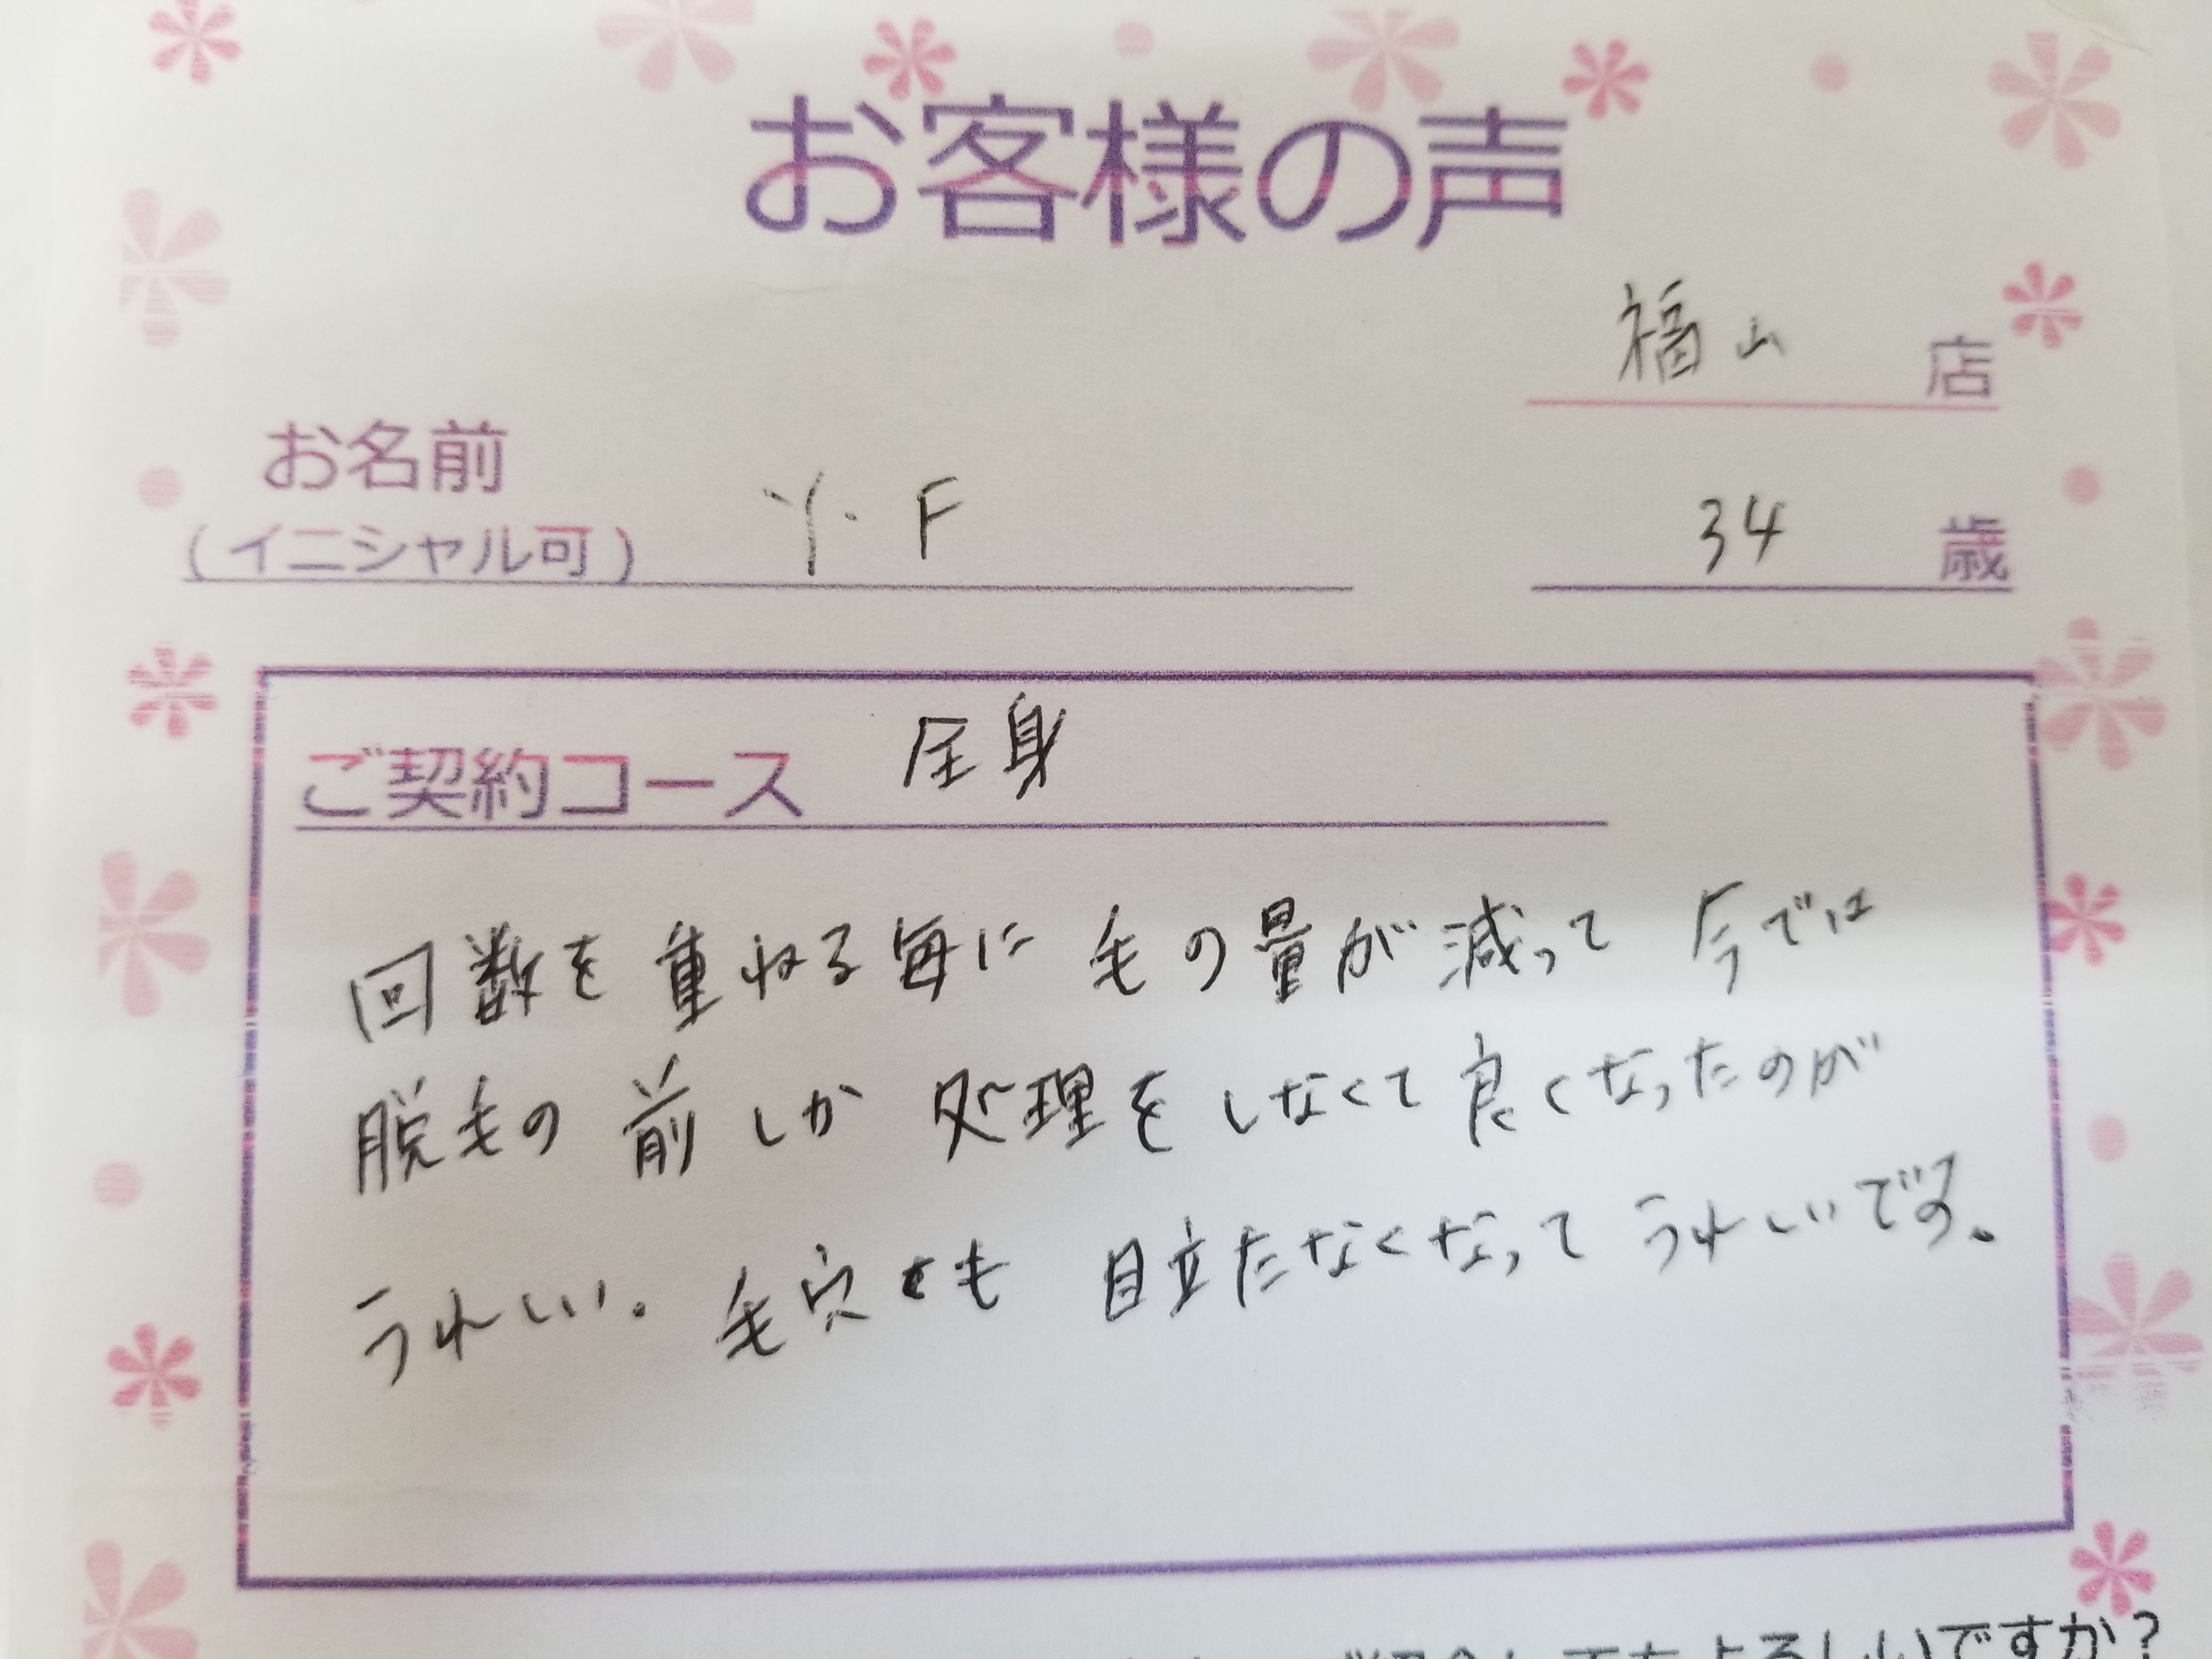 お客様の声
福山 店
お名前
(イニシャル可) Y.F 34 歳
ご契約コース 全身
回数を重ねる毎に 毛の量が減って 今では
脱毛の 前しか 処理をしなくて良くなったのが
うれしい。毛穴も 目立たなくなって うれしいです。
てもよろしいですか?